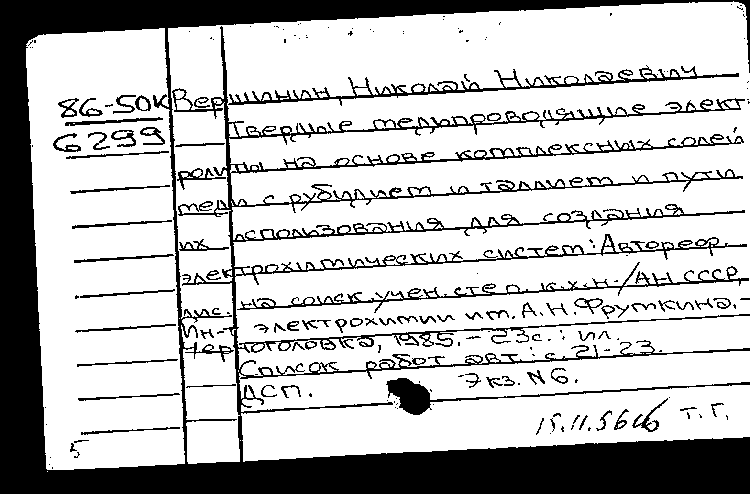 86-50к Вершинин, Николай Николаевич
6299 Твердые медьпроводящие элект
ролиты на основе комплексных солей
меди с рубидием и таллием и пути
их использования для создания
электрохимических систем: Автореф.
дис. на соиск. учен. степ. к.х.н. / АН СССР,
Ин-т электрохимии им. А.Н. Фрумкина. -
Черноголовка, 1985. - 23с.: ил.
Список работ авт.: с. 21-23.
ДСП. Экз. N6.
Т. Г.
5